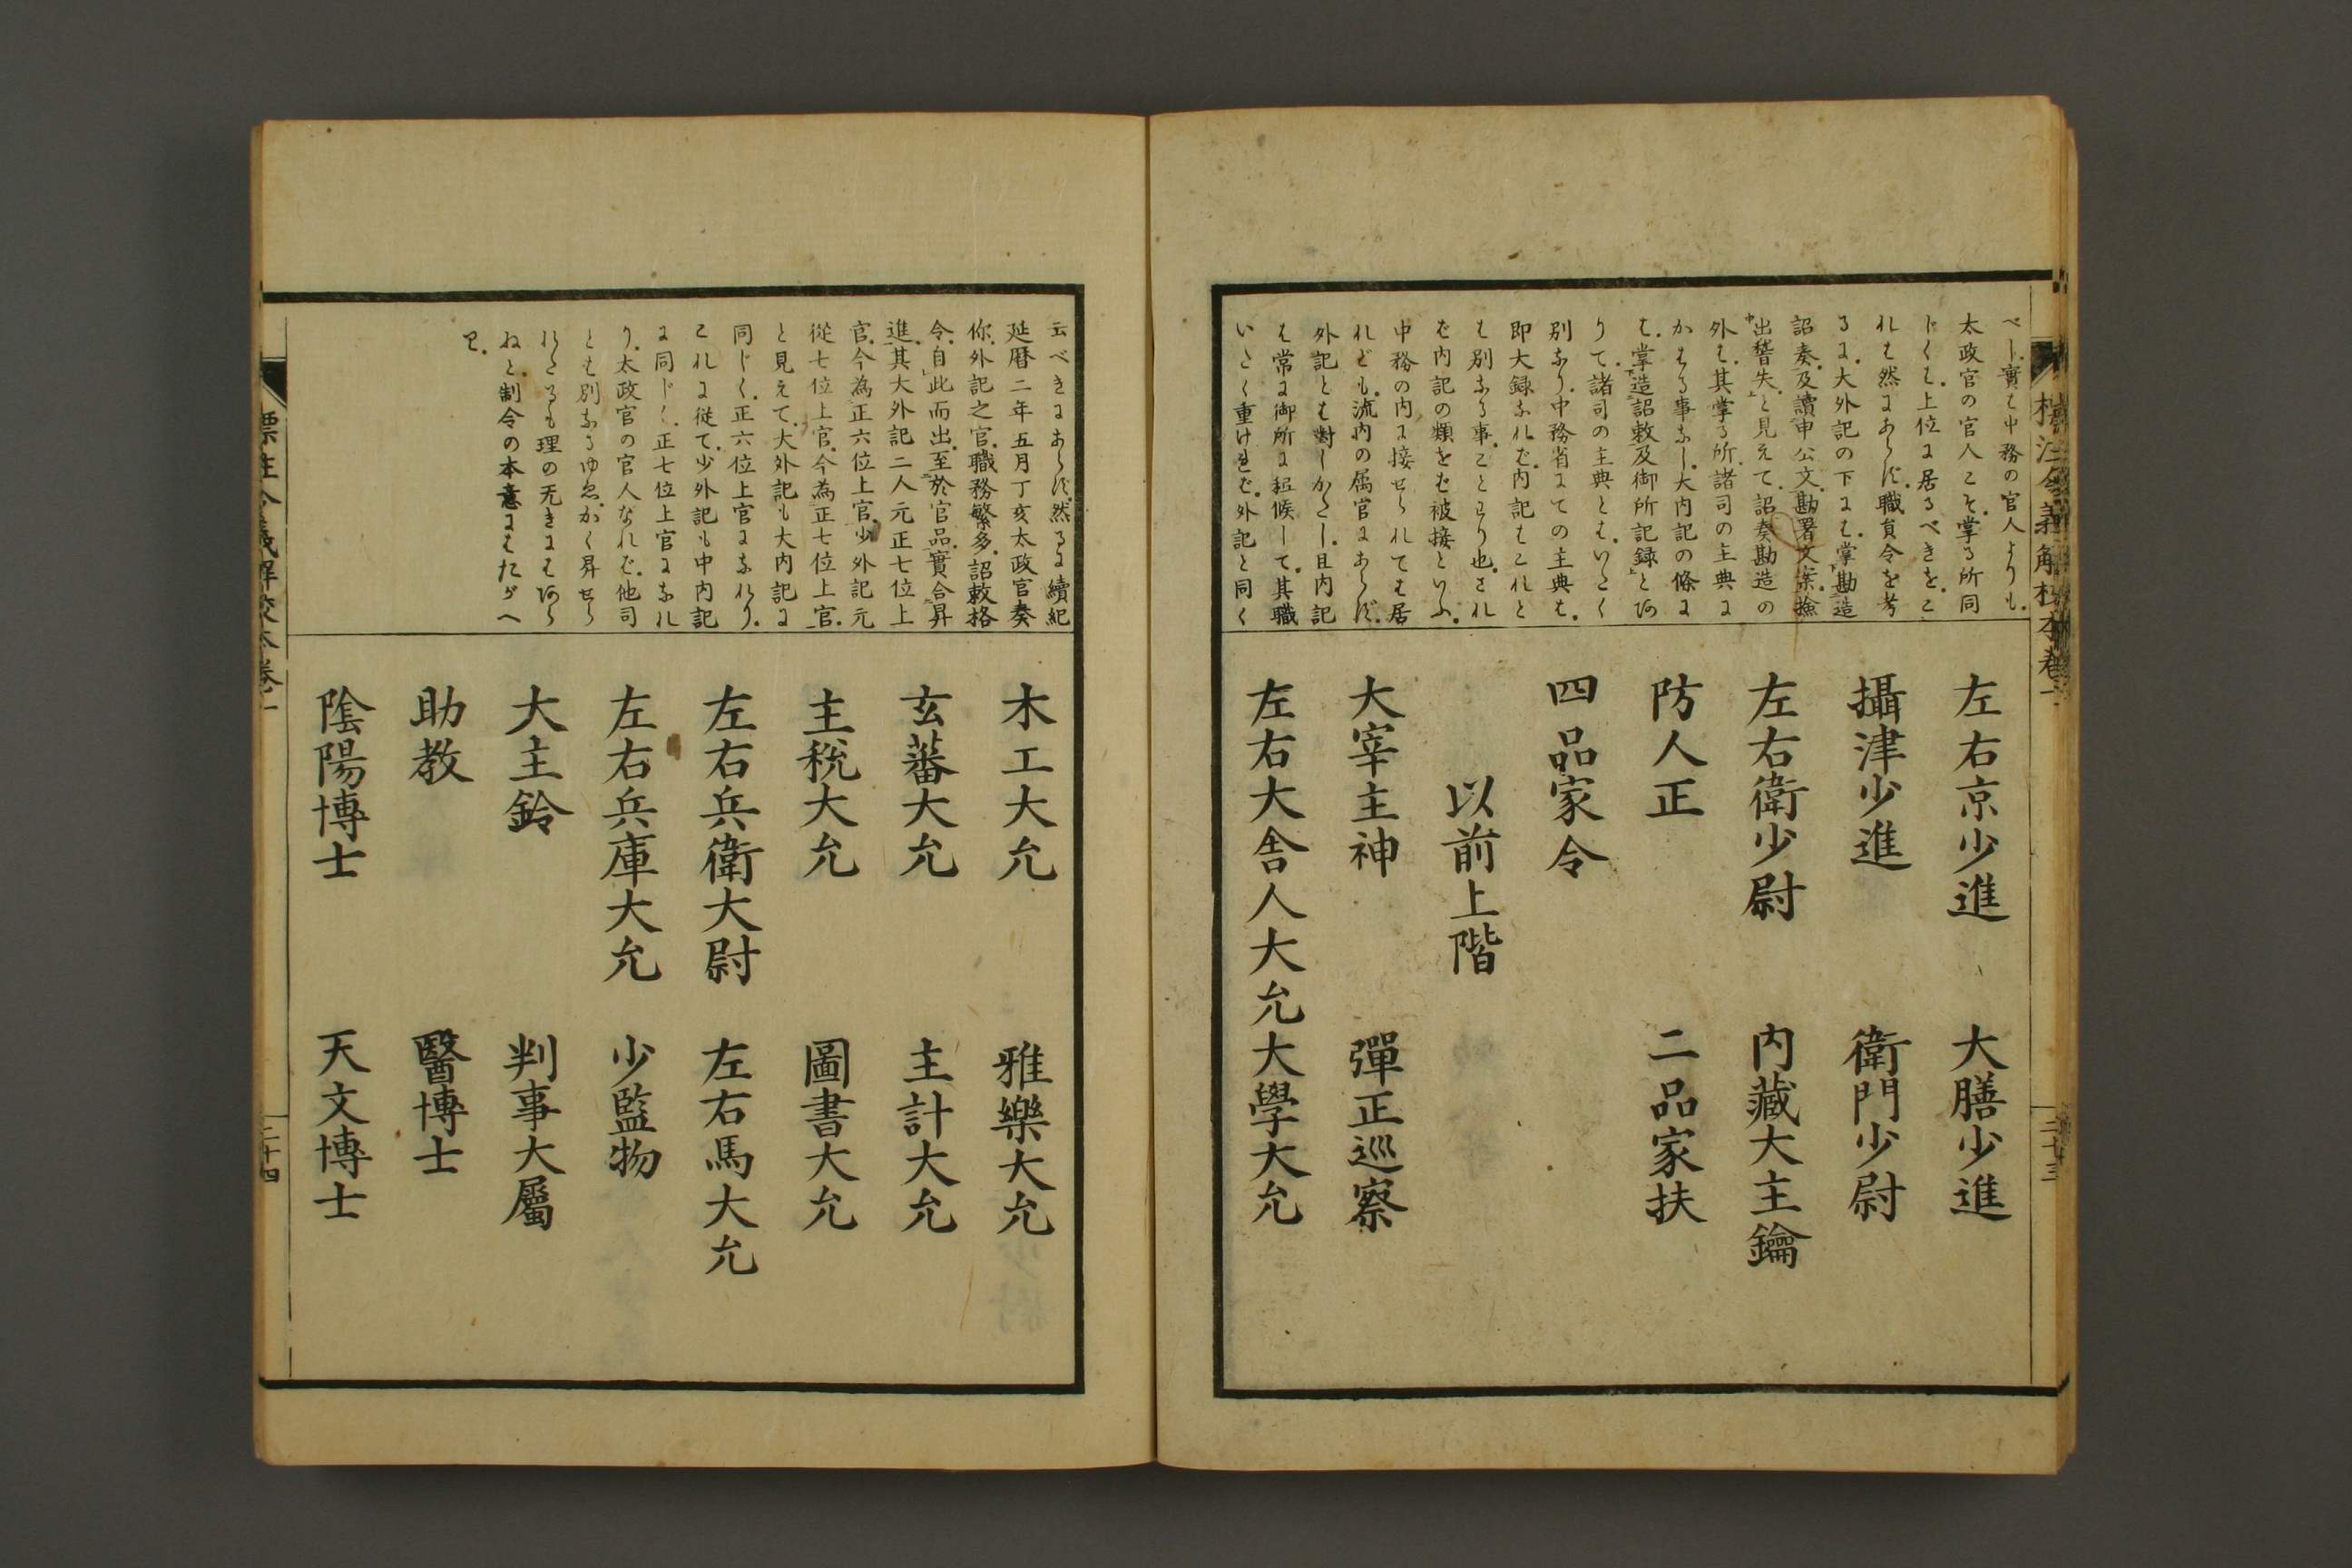 標注令義解校本卷一
べし實は中務の官人よりも
太政官の官人こそ掌る所同
じくは上位に居るべきをこ
れは然にあらず職員令を考
るに大外記の下には掌勘造
詔奏及讀申公文勘署文案撿
出稽失と見えて詔奏勘造の
外は其掌る所諸司の主典に
かはる事なし大内記の條に
は掌造詔敕及御所記録とあ
りて諸司の主典とはいたく
別なり中務省にての主典は
即大録なれば内記はこれと
は別なる事ことわり也され
ば内記の類をば被接といふ
中務の内に接せられては居
れども流内の属官にあらず
外記とは對しがたし且内記
は常に御所に祗候して其職
いたく重ければ外記と同く
左右京少進　大膳少進
攝津少進　衛門少尉
左右衛少尉　内藏大主鑰
防人正　二品家扶
四品家令
以前上階
大宰主神　彈正巡察
左右大舎人大允大學大允
二十三
云べきにあらず然るに續紀
延暦二年五月丁亥太政官奏
你外記之官職務繁多詔敕格
令自此而出至於官品實合昇
進其大外記二人元正七位上
官今為正六位上官少外記元
從七位上官今為正七位上官
と見えて大外記も大内記に
同じく正六位上官になれり
これに從て少外記も中内記
に同じく正七位上官になれ
り太政官の官人なれば他司
とも別なるゆゑかく昇せら
れたるも理の无きにはあら
ねど制令の本意にはたがへ
り
木工大允　雅樂大允
玄蕃大允　主計大允
主税大允　圖書大允
左右兵衛大尉　左右馬大允
左右兵庫大允　少監物
大主鈴　判事大屬
助教　醫博士
陰陽博士　天文博士
標注令義解校本卷一
二十四